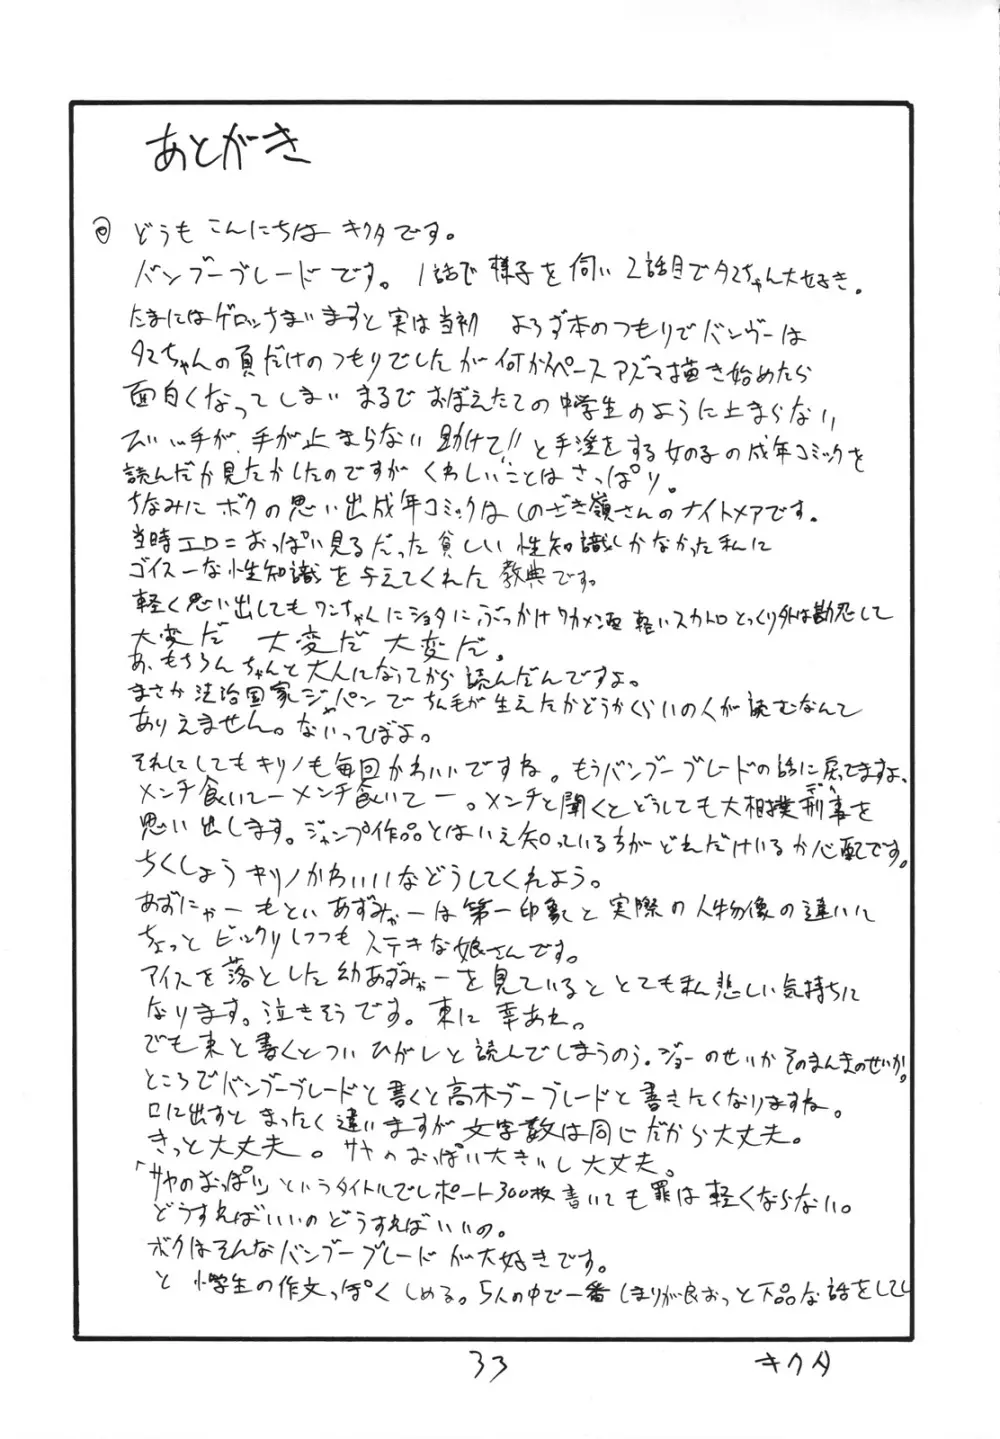 あとがき
どうもこんにちは キクタです。
バンブーブレードです。1話で様子を伺い2話目でタマちゃん大好き。
たまにはゲロッさまいますと実は当初 よろず本のつもりでバンブーは
タマちゃんの頁だけのつもりでしたが何か アズマ描き始めたら
面白くなってしまい まるでおぼえたての中学生のように止まらない
手が 手が止まらない 助けて!!と手淫をする女の子の成年コミックを
読んだか見たかしたのですが くわしいことはさっぱり。
ちなみに ボクの思い出成年コミックはしのざき嶺さんのナイトメアです。
当時エロ=おっぱい見るだった貧しい 性知識しかなかった私に
ゴイスーな性知識を与えてくれた 教典です。
軽く思い出してもワンちゃんにショタにぶっかけワカメ酒 軽いスカトロ とっくり外は勘忍して
大変だ 大変だ 大変だ。
あ、もちろん ちゃんと大人になってから 読んだんですよ。
まさか法治国家ジャパンでちん毛が生えたかどうかくらいの人が読むなんて
ありえません。ないってばよ。
それにしてもキリノも毎回かわいいですね。もうバンブーブレードの話に戻ってますよ、
メンチ食いてーメンチ食いてー。メンチと聞くとどうしても大相撲刑事を
思い出します。ジャンプ作品とはいえ知っている方がどれだけいるか心配です。
ちくしょうキリノかわいいなどうしてくれよう。
あずにゃーもといあずみゃーは第一印象と実際の人物像の違いに
ちょっとビックリしつつもステキな娘さんです。
アイスを落とした幼あずみゃーを見ているととても私悲しい気持ちに
なります。泣きそうです。東に幸あれ。
でも東と書くとついひがしと読んでしまうのう。ジョーのせいかそのまんまのせいか。
ところでバンブーブレードと書くと高木ブーブレードと書きたくなりますね。
口に出すとまったく違いますが文字数は同じだから大丈夫。
きっと大丈夫。サヤのおっぱい大きいし大丈夫。
「サヤのおっぱい」というタイトルでレポート300枚書いても罪は軽くならない。
どうすればいいのどうすればいいの。
ボクはそんなバンブーブレードが大好きです。
と小学生の作文っぽくしめる。5人の中で一番しまりが良おっと下品な話をして
33
キクタ